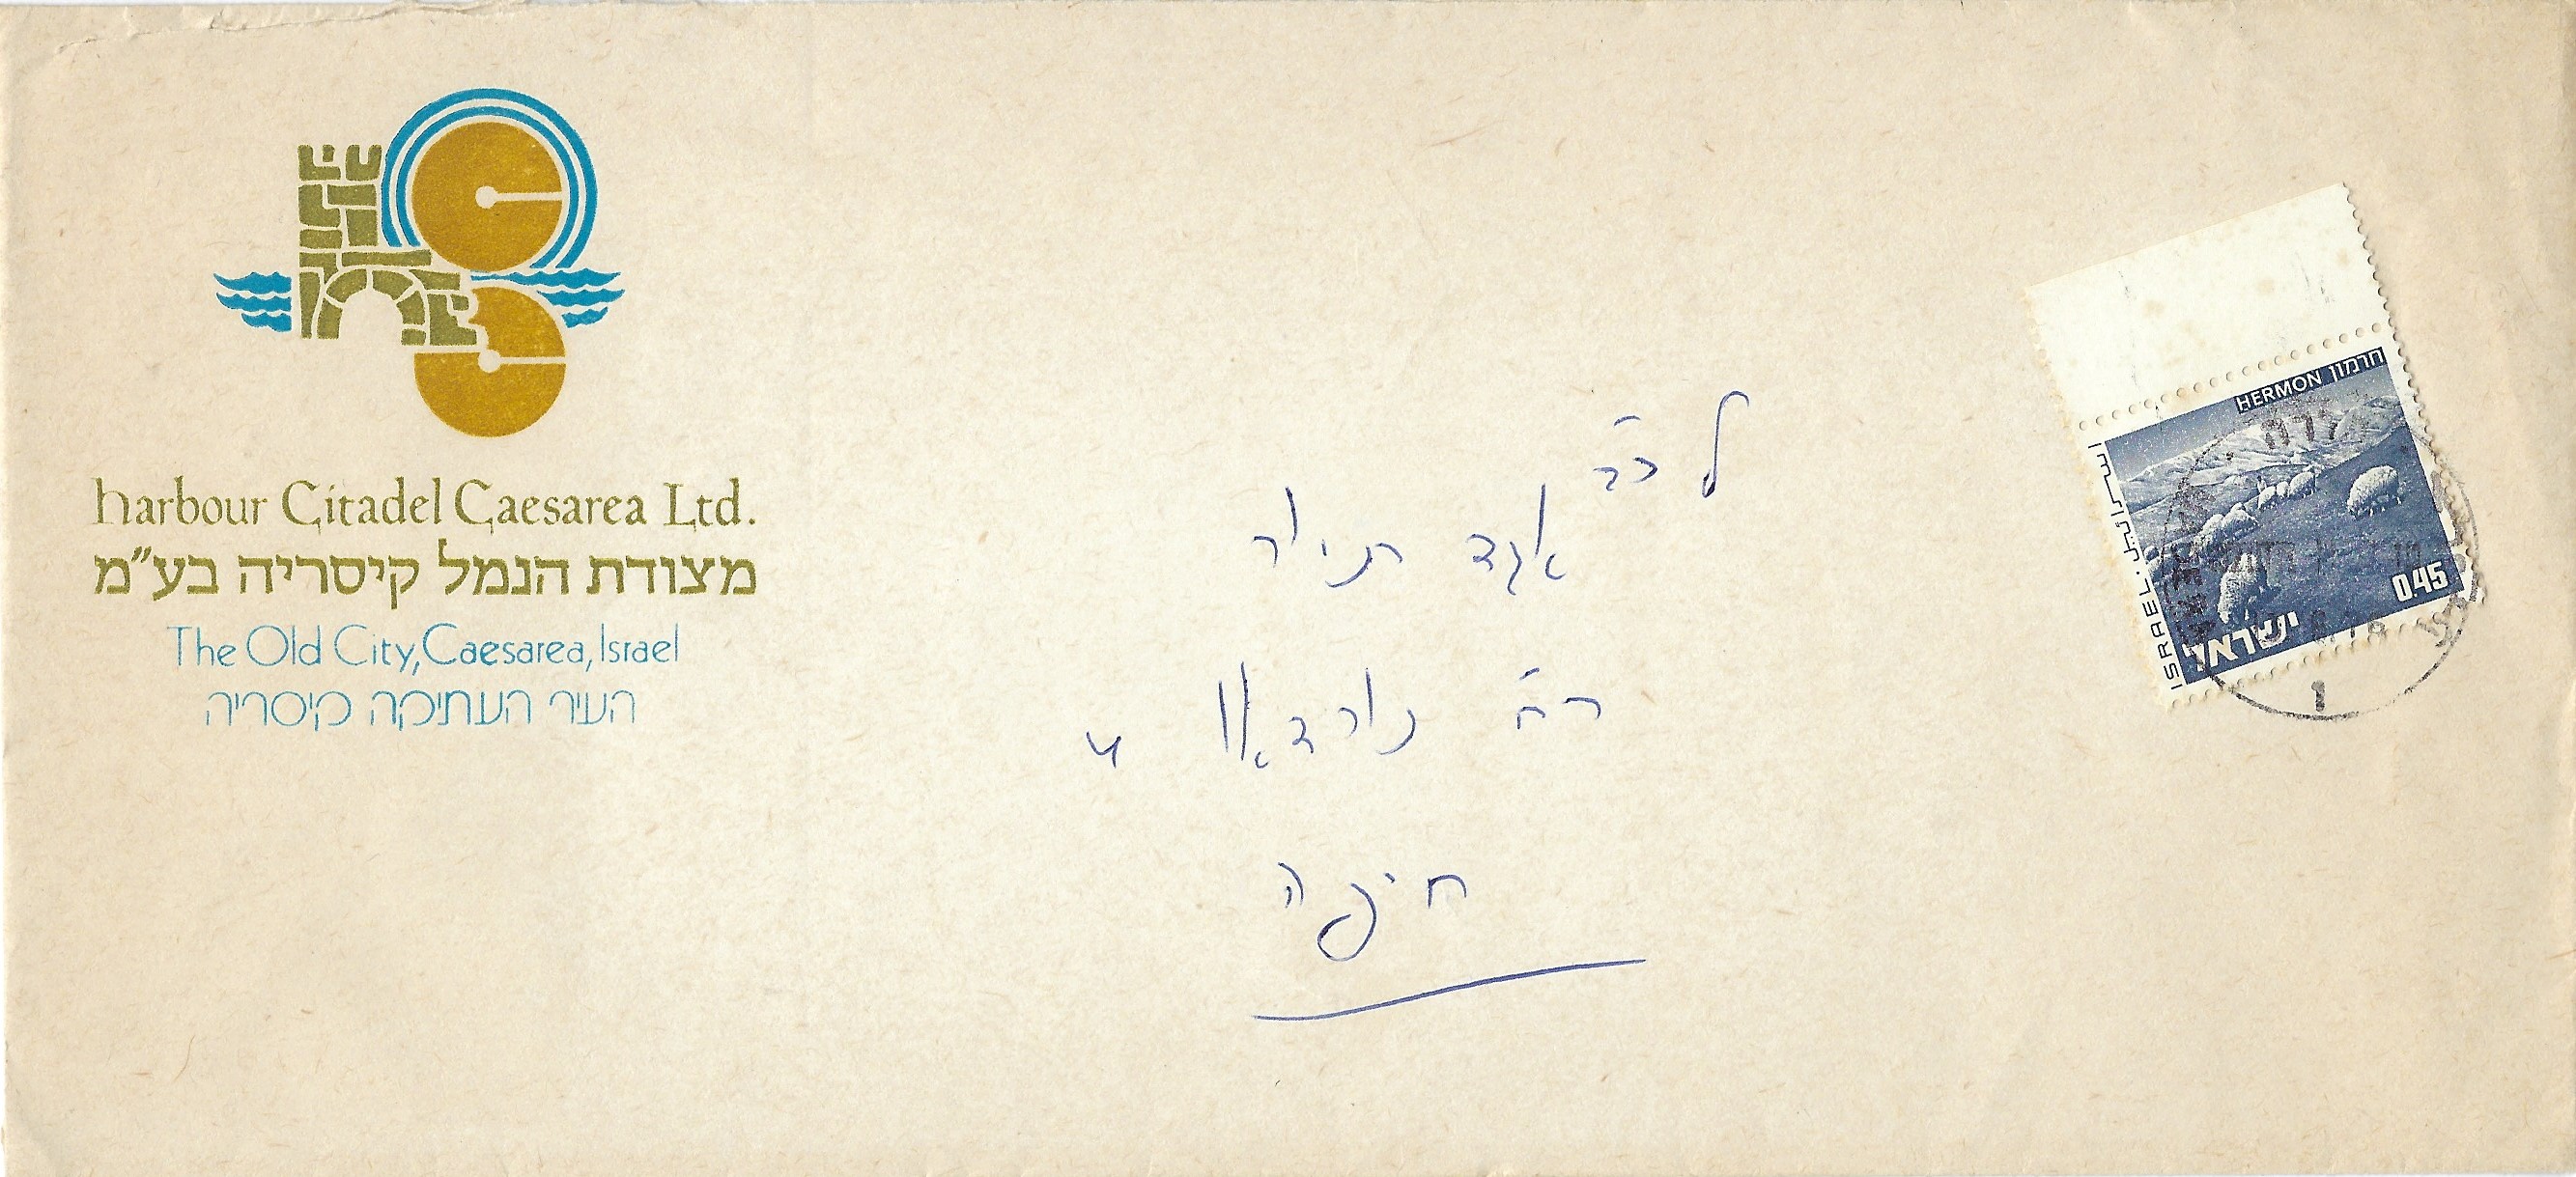 harbour Citadel Caesarea Ltd.
מצודת הנמל קיסריה בע״מ
The Old City, Caesarea, Israel
העיר העתיקה קיסריה
חרמון HERMON
ISRAEL
0.45
ישראל
1
לכב׳
אגד תיור
רח׳ נורדאו 4
חיפה